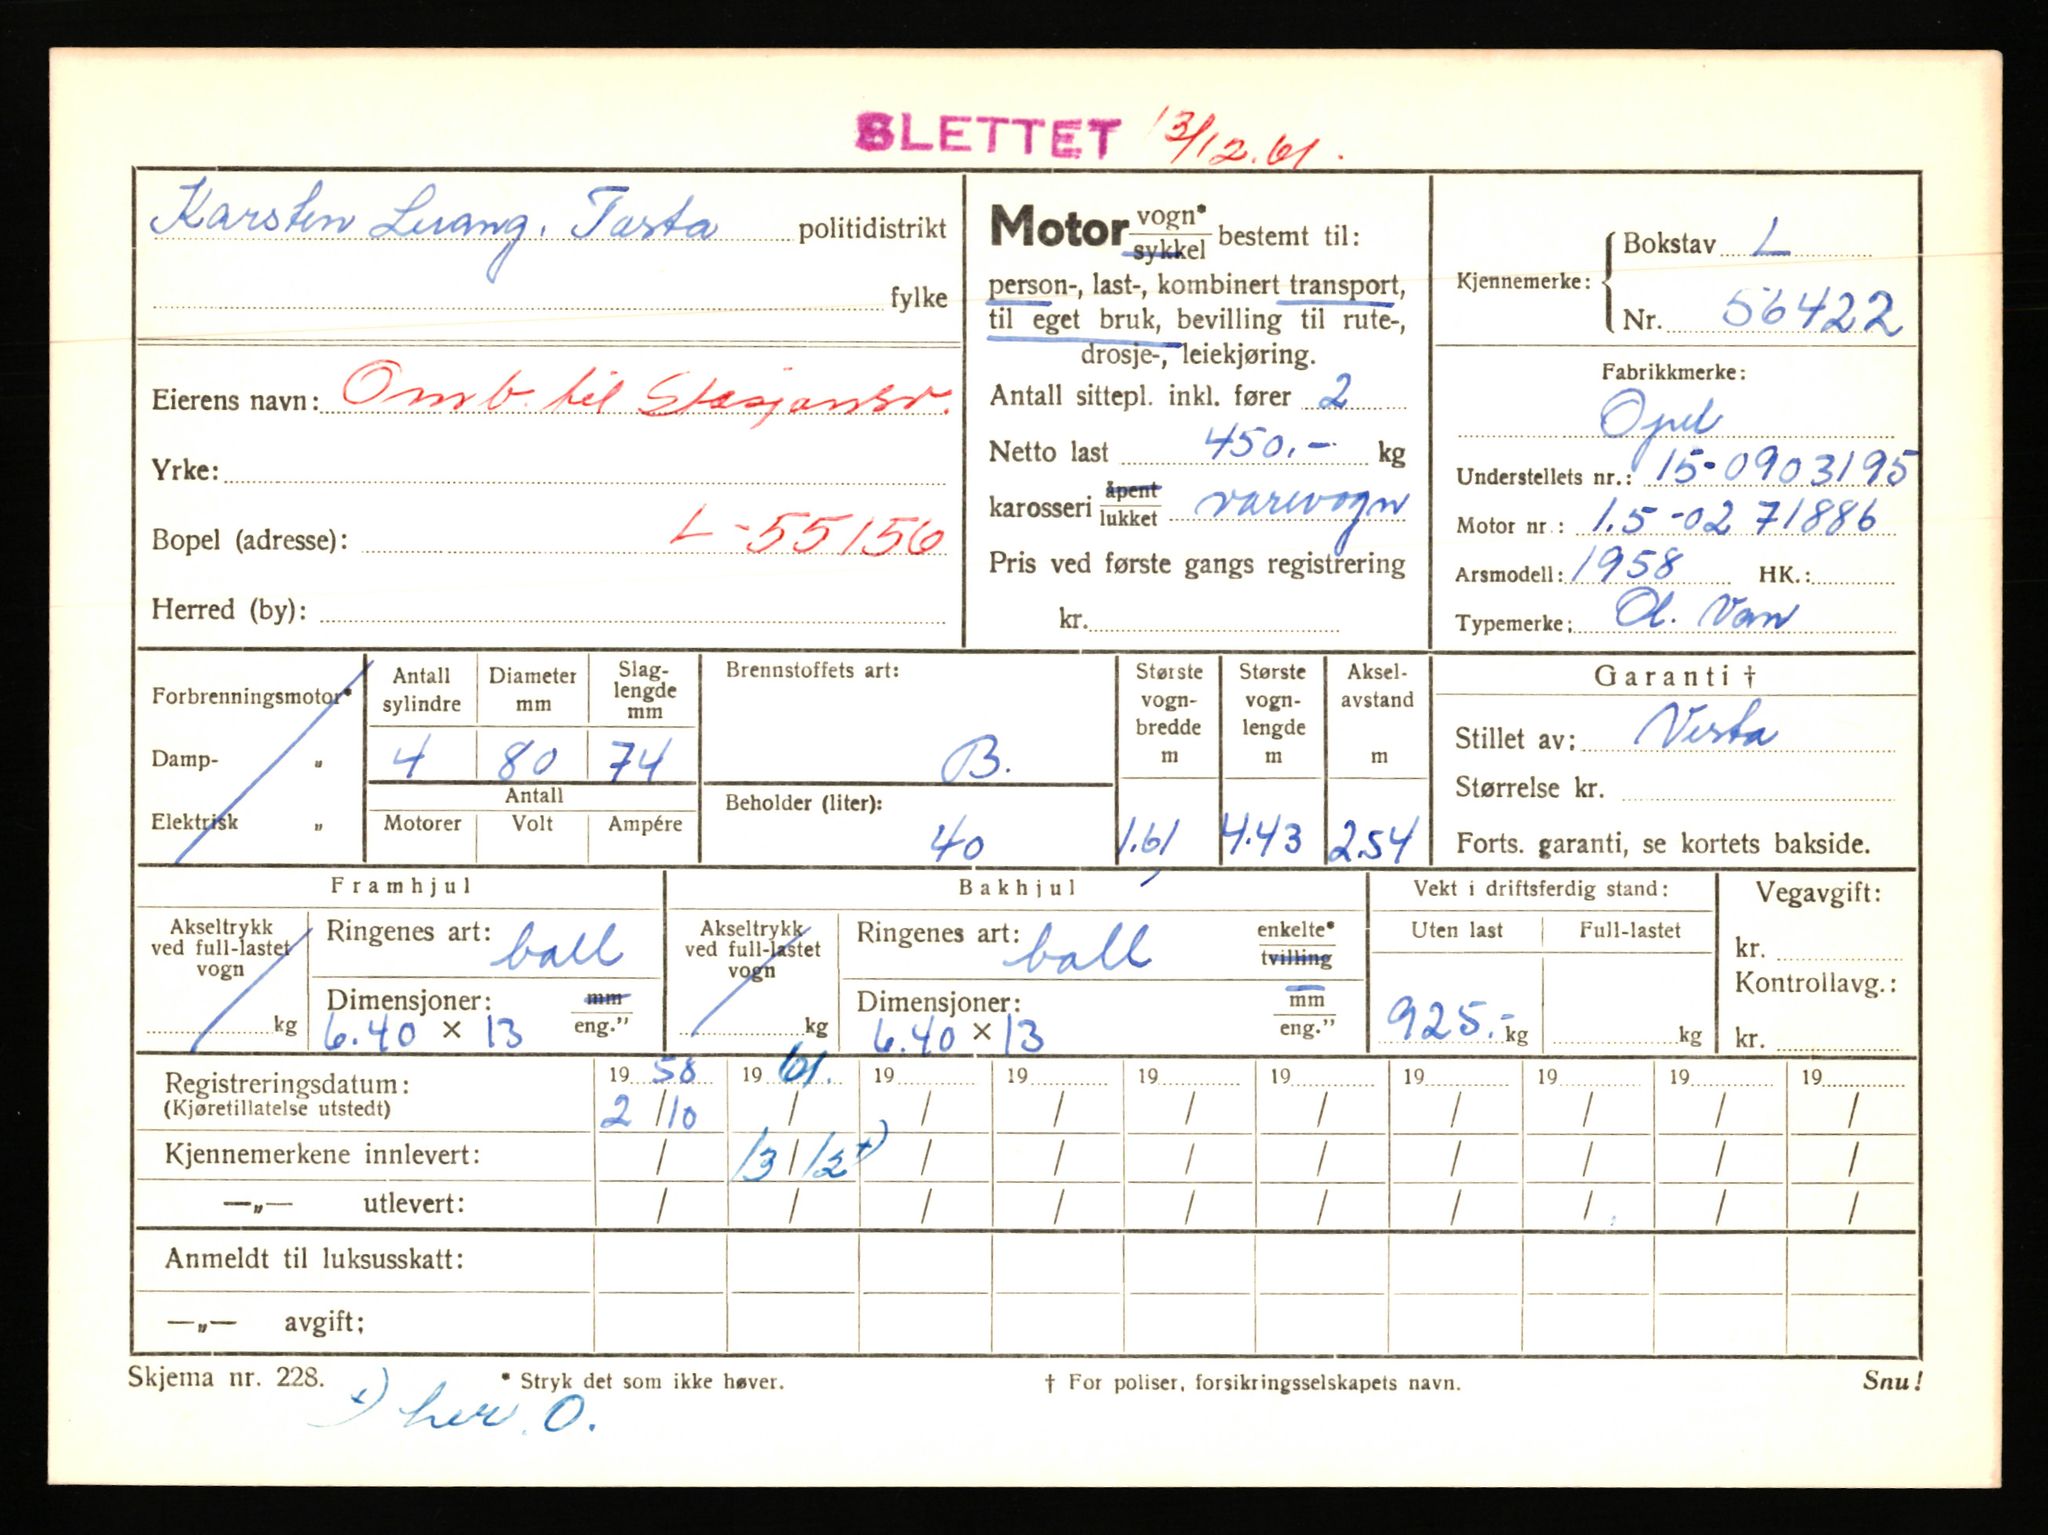 SLETTET 13/12.61.
Karsten Lerang. Tasta politidistrikt
fylke
Eierens navn: Omb. til Stasjonsv.
Yrke:
Bopel (adresse): L-55156
Herred (by):
Motor vogn* sykkel bestemt til:
person-, last-, kombinert transport,
til eget bruk, bevilling til rute-,
drosje-, leiekjøring.
Antall sittepl. inkl. fører 2
Netto last 450.- kg
karosseri åpent lukket varevogn
Pris ved første gangs registrering
kr.
Kjennemerke: Bokstav L
Nr. 56422
Fabrikkmerke:
Opel
Understellets nr.: 15-0903195
Motor nr.: 1.5-0271886
Arsmodell: 1958 HK.:
Typemerke: Ol. Van
Forbrenningsmotor*
Damp- „
Elektrisk „
Antall sylindre
Diameter mm
Slag-lengde mm
4 80 74
Antall
Motorer Volt Ampére
Brennstoffets art:
B.
Beholder (liter):
40
Største vogn-bredde m
1.61
Største vogn-lengde m
4.43
Aksel-avstand m
2.54
Garanti †
Stillet av: Vesta
Størrelse kr.
Forts. garanti, se kortets bakside.
Framhjul
Akseltrykk ved full-lastet vogn
kg
Ringenes art: ball
Dimensjoner: mm eng."
6.40 × 13
Bakhjul
Akseltrykk ved full-lastet vogn
kg
Ringenes art: ball enkelte* tvilling
Dimensjoner: mm eng."
6.40 × 13
Vekt i driftsferdig stand:
Uten last Full-lastet
925.- kg kg
Vegavgift:
kr.
Kontrollavg.:
kr.
Registreringsdatum: 19 58 19 61. 19 19 19 19 19 19 19 19
(Kjøretillatelse utstedt) 2/10 / / / / / / / / /
Kjennemerkene innlevert: / 13/12 x) / / / / / / / /
—„— utlevert: / / / / / / / / / /
Anmeldt til luksusskatt:
—„— avgift;
Skjema nr. 228. * Stryk det som ikke høver. † For poliser, forsikringsselskapets navn. Snu!
x) her. O.